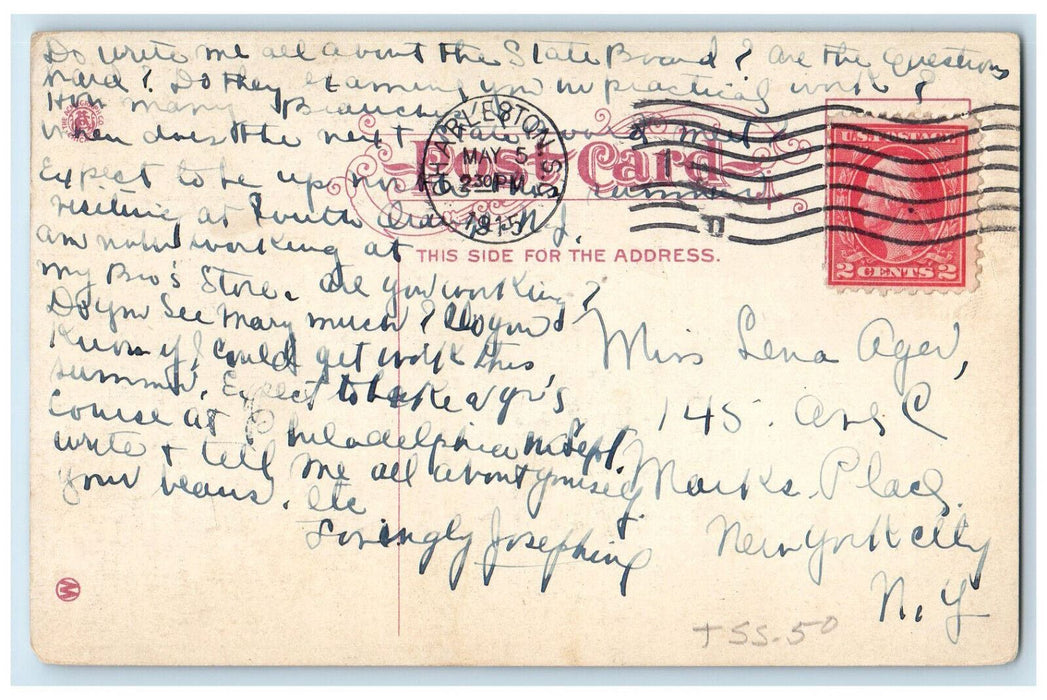 Do write me all about the State Board? Are the questions
hard? Do they examine you in practical work?
How many Branches
When does the next State Board meet
Expect to be up north this
visiting at South N.J.
am now working at
my Bro's Store. Are you working?
Do you see Mary much? Do you
Know if I could get work this
summer. Expect to take a yr's
course at Philadelphia in Sept.
write & tell me all about yourself
your beaus. etc
Lovingly Josephine
CHARLESTON, S.C.
MAY 5
230 PM
1915
Post Card
THIS SIDE FOR THE ADDRESS.
U.S. POSTAGE
2 CENTS 2
Miss Lena Ager,
145 Ave C
Marks Place
New York City
N.Y
+SS-50